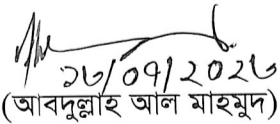 ১৩/০৭/২০২৩
(আবদুল্লাহ আল মাহমুদ)